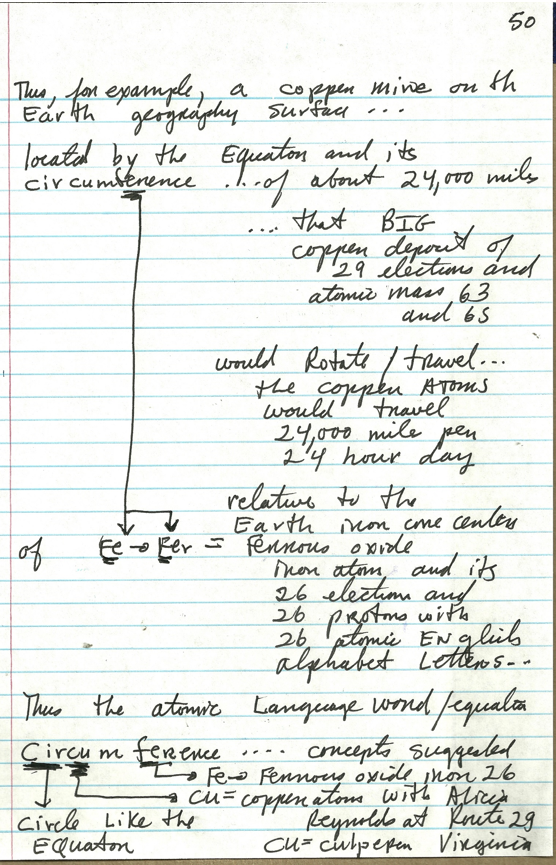 50
Thus, for example, a copper mine on th
Earth geography surface ...
located by the Equator and its
circumference ....of about 24,000 miles
.... that BIG
copper deposit of
29 electrons and
atomic mass 63
and 65
would Rotate / travel...
the copper ATOMS
would travel
24,000 mile per
24 hour day
relative to the
Earth iron core center
of Fe → Fer = Ferrous oxide
iron atom and its
26 electron and
26 protons with
26 atomic ENglish
alphabet Letters...
Thus the atomic Language word/equator
Circum ference .... concepts suggested
Fe → Ferrous oxide iron 26
CU = copper atoms with Alicia
Circle Like the Reynolds at Route 29
EQuator CU = culpeper Virginia